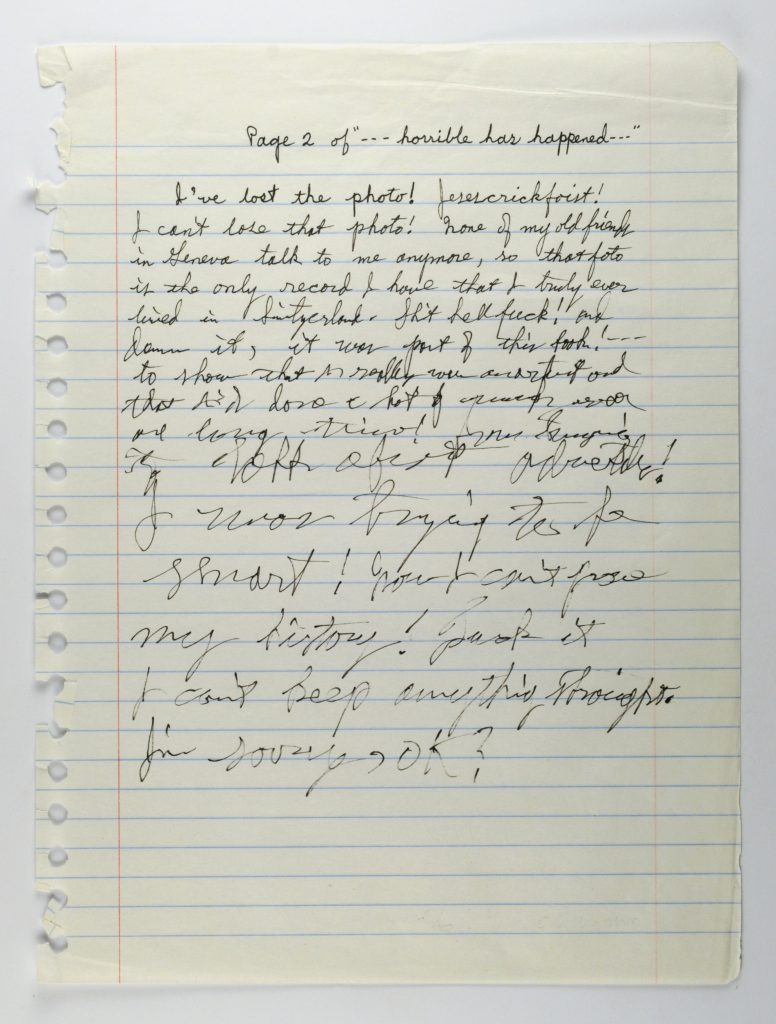 Page 2 of "--- horrible has happened---"
I've lost the photo! Jesescrickfoist!
I can't lose that photo! None of my old friends
in Geneva talk to me anymore, so that foto
is the only record I have that I truly ever
lived in Switzerland. Shit hell fuck! and
damn it, it was part of this book!---
to show that I really was an artist and
that I'd done a lot of
long
I was trying to be
smart! Now I can't prove
my history! Fuck it
I can't keep anything straight.
I'm sorry, OK?